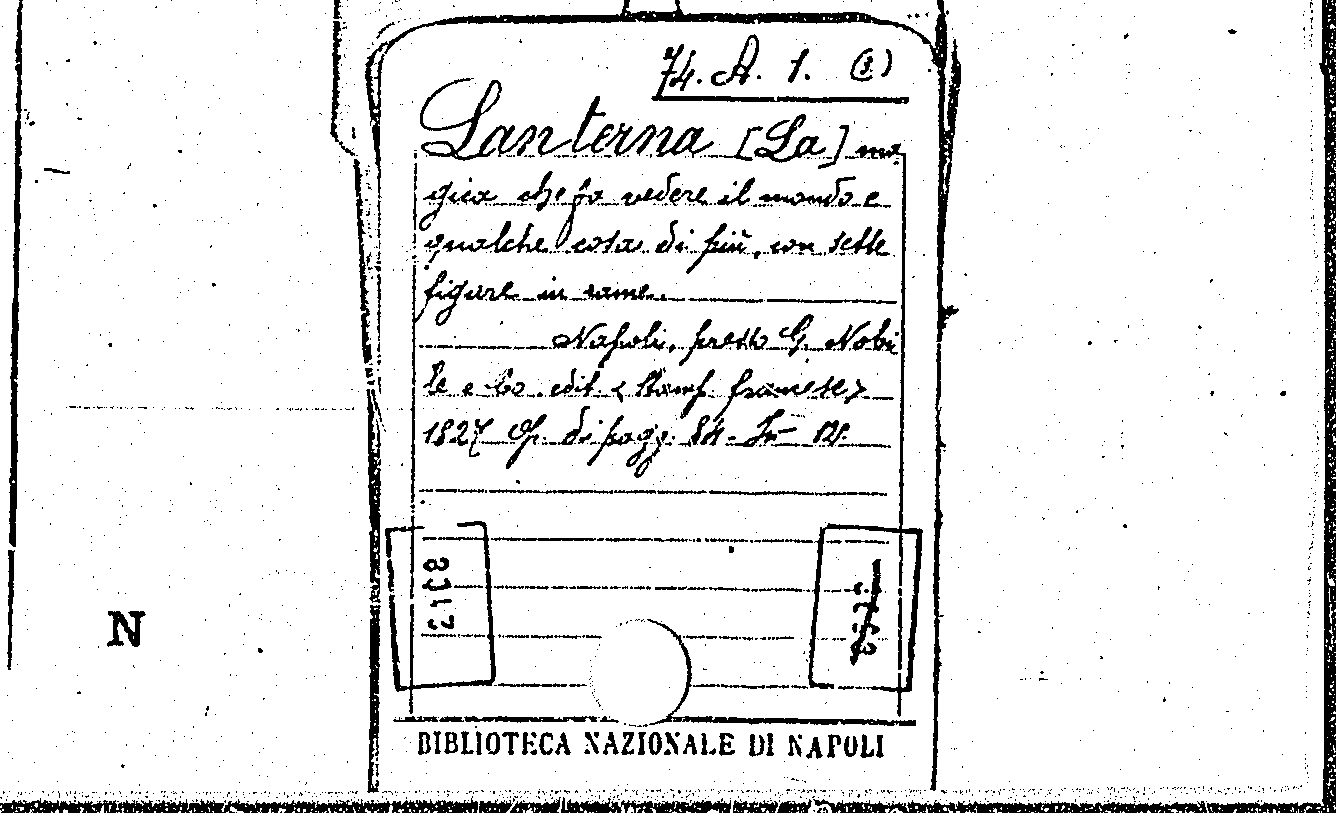 74. A. 1. (3)
Lanterna [La] ma
gica che fa vedere il mondo e
qualche cosa di più, con sette
figure in rame.
Napoli, presso G. Nobi
le e Co. edit. < Stamp. francese >
1827 Op. di pagg. 84. In 12.
BIBLIOTECA NAZIONALE DI NAPOLI
N